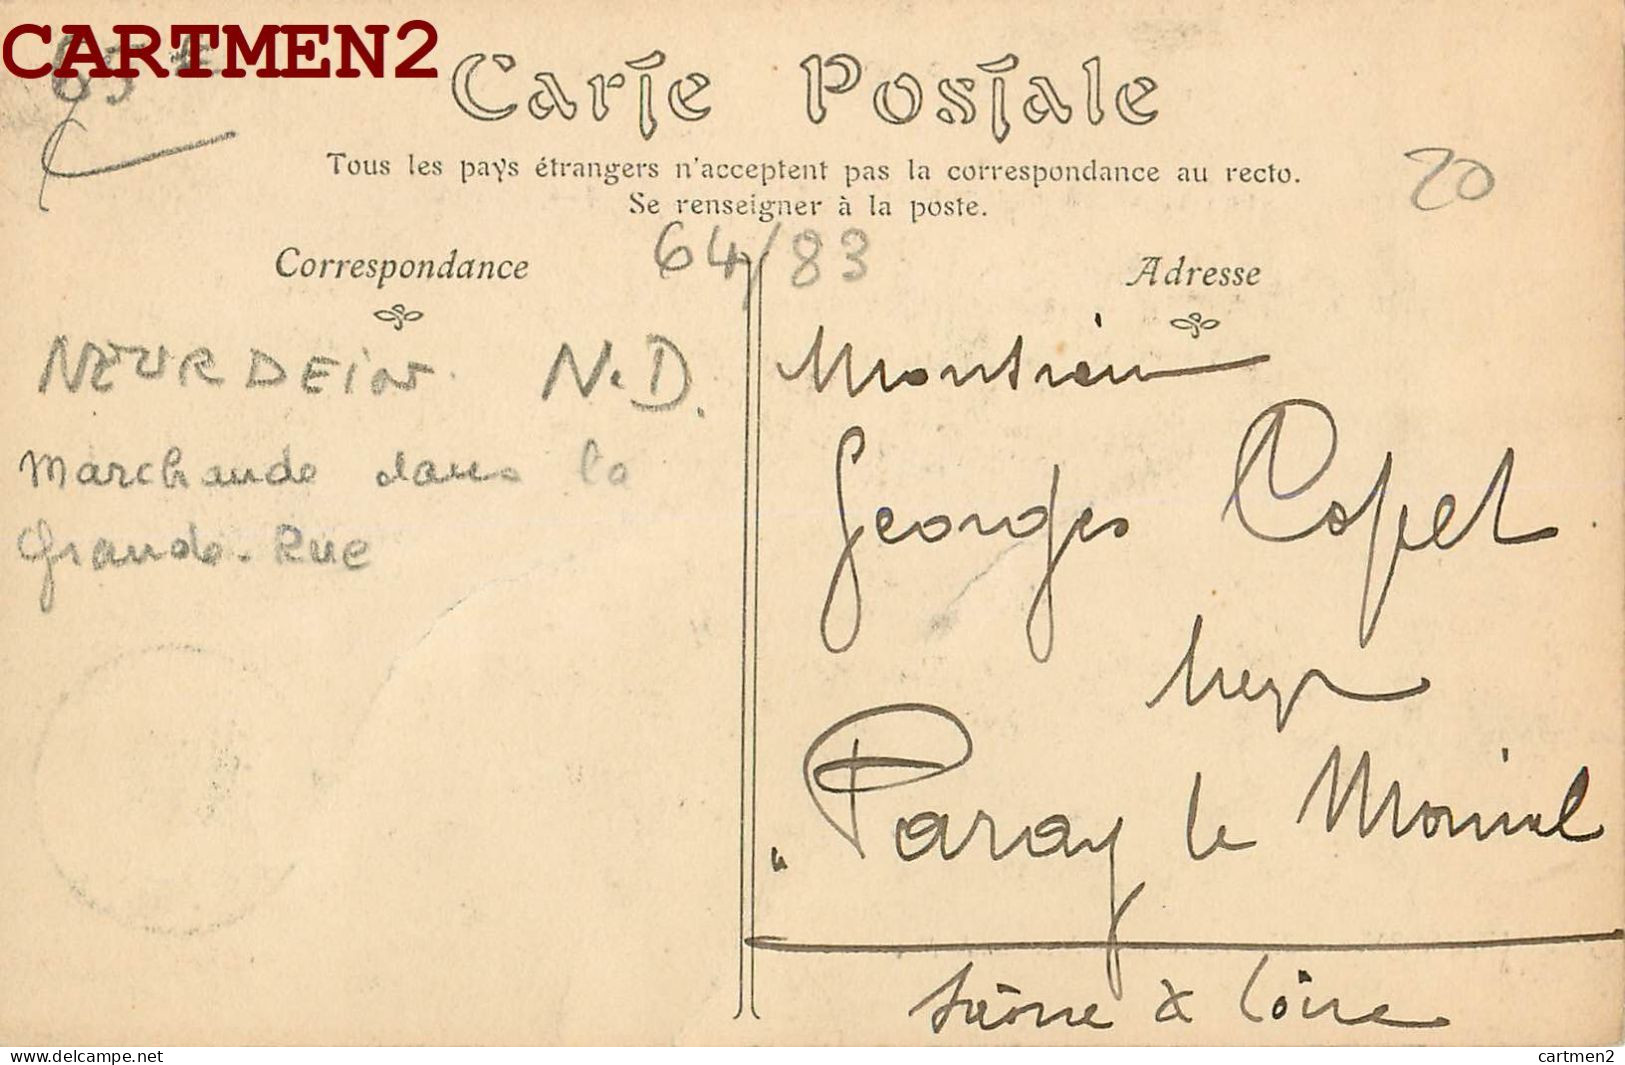 CARTMEN2
65 €
Carte Postale
Tous les pays étrangers n'acceptent pas la correspondance au recto.
Se renseigner à la poste.
20
64/83
Correspondance
Adresse
NEURDEIN. N.D.
Marchande dans la
Grande-Rue
Monsieur
Georges Copet
Paray le Monial
Saône & Loire
delcampe.net
cartmen2